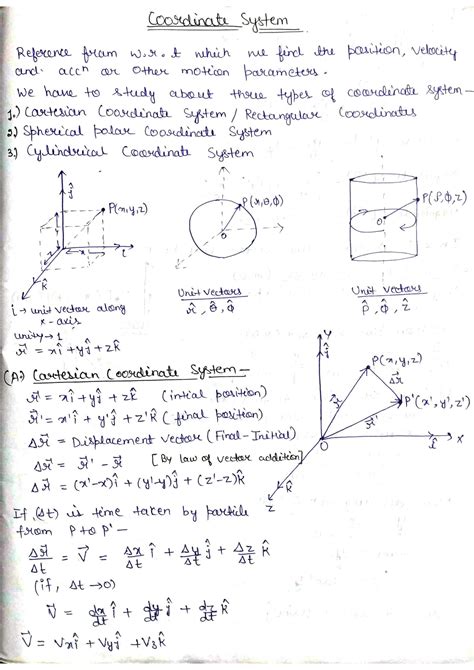 Coordinate System
Reference fram w.r.t which we find the position, velocity
and accⁿ or other motion parameters.
We have to study about three types of coordinate system-
1.) Cartesian Coordinate System / Rectangular Coordinates
2.) Spherical polar Coordinate System
3.) Cylindrical Coordinate System
ĵ
P(x,y,z)
x
î
k̂
P(r,θ,φ)
O
P(ρ,φ,z)
O
î → unit vector along
x-axis
unity → 1
r⃗ = xî + yĵ + zk̂
Unit vectors
r̂, θ̂, φ̂
Unit vectors
ρ̂, φ̂, ẑ
(A.) Cartesian Coordinate System -
r⃗ = xî + yĵ + zk̂ (intial position)
r⃗' = x'î + y'ĵ + z'k̂ (final position)
Δr⃗ = Displacement vector (Final-Initial)
Δr⃗ = r⃗' - r⃗ [By law of vector addition]
Δr⃗ = (x'-x)î + (y'-y)ĵ + (z'-z)k̂
Y
ĵ
P(x,y,z)
Δr⃗
P'(x',y',z')
r⃗
r⃗'
O
î
X
k̂
Z
If (Δt) is time taken by particle
from P to P' -
Δr⃗/Δt = V⃗ = Δx/Δt î + Δy/Δt ĵ + Δz/Δt k̂
(if, Δt → 0)
V⃗ = dx/dt î + dy/dt ĵ + dz/dt k̂
V⃗ = Vxî + Vyĵ + Vzk̂